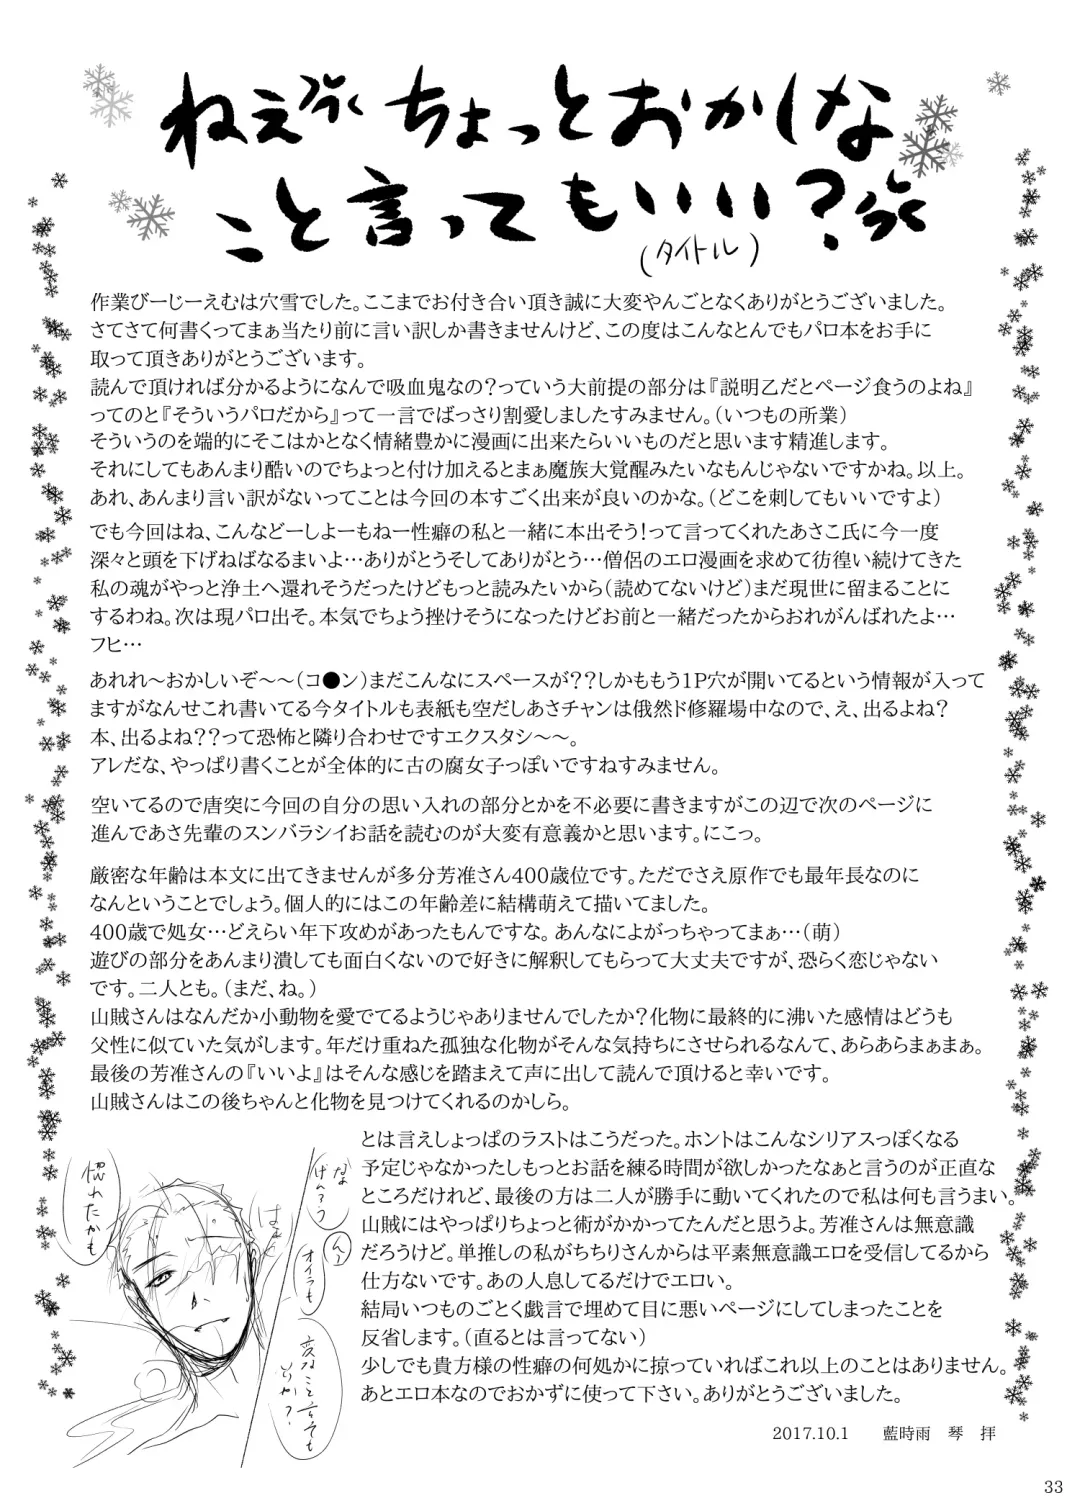 ねえ ちょっとおかしな
こと言ってもいい?
(タイトル)
作業びーじーえむは穴雪でした。ここまでお付き合い頂き誠に大変やんごとなくありがとうございました。
さてさて何書くってまぁ当たり前に言い訳しか書きませんけど、この度はこんなとんでもパロ本をお手に
取って頂きありがとうございます。
読んで頂ければ分かるようになんで吸血鬼なの?っていう大前提の部分は『説明乙だとページ食うのよね』
ってのと『そういうパロだから』って一言でばっさり割愛しましたすみません。(いつもの所業)
そういうのを端的にそこはかとなく情緒豊かに漫画に出来たらいいものだと思います精進します。
それにしてもあんまり酷いのでちょっと付け加えるとまぁ魔族大覚醒みたいなもんじゃないですかね。以上。
あれ、あんまり言い訳がないってことは今回の本すごく出来が良いのかな。(どこを刺してもいいですよ)
でも今回はね、こんなどーしよーもねー性癖の私と一緒に本出そう!って言ってくれたあさこ氏に今一度
深々と頭を下げねばなるまいよ…ありがとうそしてありがとう…僧侶のエロ漫画を求めて彷徨い続けてきた
私の魂がやっと浄土へ還れそうだったけどもっと読みたいから(読めてないけど)まだ現世に留まることに
するわね。次は現パロ出そ。本気でちょう挫けそうになったけどお前と一緒だったからおれがんばれたよ…
フヒ…
あれれ～おかしいぞ～～(コ●ン)まだこんなにスペースが??しかももう1P穴が開いてるという情報が入って
ますがなんせこれ書いてる今タイトルも表紙も空だしあさチャンは俄然ド修羅場中なので、え、出るよね?
本、出るよね??って恐怖と隣り合わせですエクスタシ～～。
アレだな、やっぱり書くことが全体的に古の腐女子っぽいですねすみません。
空いてるので唐突に今回の自分の思い入れの部分とかを不必要に書きますがこの辺で次のページに
進んであさ先輩のスンバラシイお話を読むのが大変有意義かと思います。にこっ。
厳密な年齢は本文に出てきませんが多分芳准さん400歳位です。ただでさえ原作でも最年長なのに
なんということでしょう。個人的にはこの年齢差に結構萌えて描いてました。
400歳で処女…どえらい年下攻めがあったもんですな。あんなによがっちゃってまぁ…(萌)
遊びの部分をあんまり潰しても面白くないので好きに解釈してもらって大丈夫ですが、恐らく恋じゃない
です。二人とも。(まだ、ね。)
山賊さんはなんだか小動物を愛でてるようじゃありませんでしたか?化物に最終的に沸いた感情はどうも
父性に似ていた気がします。年だけ重ねた孤独な化物がそんな気持ちにさせられるなんて、あらあらまぁまぁ。
最後の芳准さんの『いいよ』はそんな感じを踏まえて声に出して読んで頂けると幸いです。
山賊さんはこの後ちゃんと化物を見つけてくれるのかしら。
とは言えしょっぱのラストはこうだった。ホントはこんなシリアスっぽくなる
予定じゃなかったしもっとお話を練る時間が欲しかったなぁと言うのが正直な
ところだけれど、最後の方は二人が勝手に動いてくれたので私は何も言うまい。
山賊にはやっぱりちょっと術がかかってたんだと思うよ。芳准さんは無意識
だろうけど。単推しの私がちちりさんからは平素無意識エロを受信してるから
仕方ないです。あの人息してるだけでエロい。
結局いつものごとく戯言で埋めて目に悪いページにしてしまったことを
反省します。(直るとは言ってない)
少しでも貴方様の性癖の何処かに掠っていればこれ以上のことはありません。
あとエロ本なのでおかずに使って下さい。ありがとうございました。
オイラも
変なこと言っても
いいか?
惚れたかも
2017.10.1 藍時雨 琴 拝
33